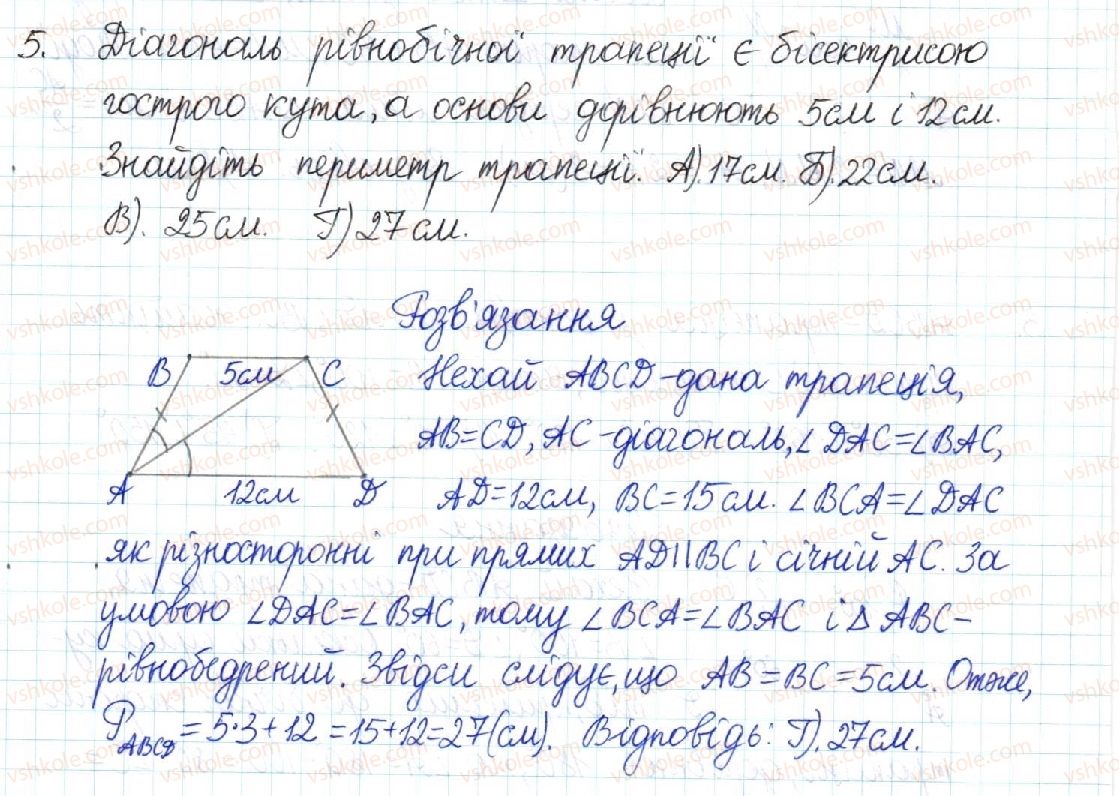 5. Діагональ рівнобічної трапеції є бісектрисою
гострого кута, а основи дорівнюють 5см і 12см.
Знайдіть периметр трапеції. А). 17см. Б). 22см.
В). 25см. Г) 27см.
Розв'язання
B 5см C
A 12см D
Нехай ABCD - дана трапеція,
AB=CD, AC - діагональ, ∠DAC=∠BAC,
AD=12см, BC=15см. ∠BCA=∠DAC
як різносторонні при прямих AD||BC і січній AC. За
умовою ∠DAC=∠BAC, тому ∠BCA=∠BAC і △ABC -
рівнобедрений. Звідси слідує, що AB=BC=5см. Отже,
P_ABCD = 5·3+12=15+12=27(см). Відповідь: Г). 27см.